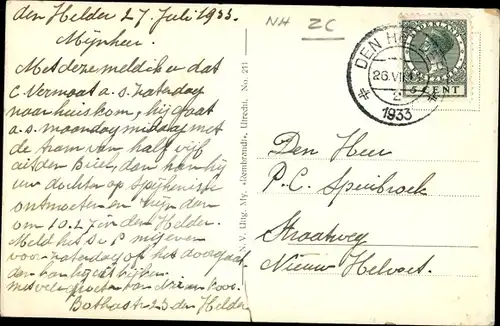 den Helder 27 Juli 1933.
Mijnheer.
Met deze meld ik u dat
C. Vermaat a.s. zaterdag
naar huis kom, hij gaat
a.s. maandag middag met
de tram van half vijf
uit den Briel, dan kan hij
uw dochter op Spijkenisse
ontmoeten en zijn den
om 10.27 in den Helder.
Meld het s.v.p mij even
voor zaterdag of het doorgaat
dan kan hij
met vele groeten van
Bothastr 23 den Helder
NH ZC
N.V. Uitg. My. «Rembrandt», Utrecht. No. 241
DEN HELDER
26.VII
2
1933
NEDERLAND
5 CENT
Den Heer
P. C. Speibroek
Straatweg
Nieuw Helvoet.